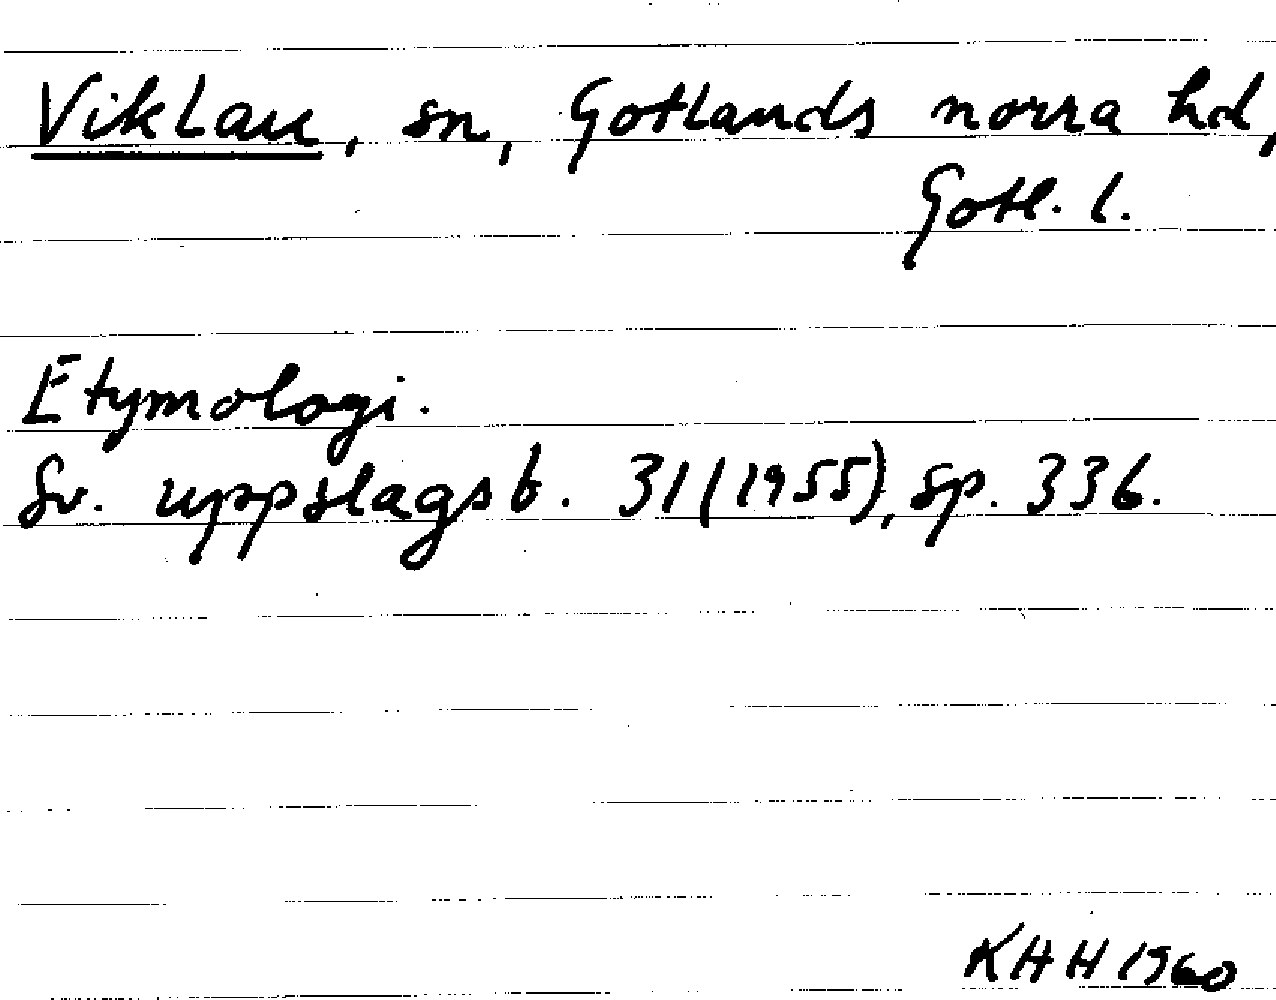 Viklau, sn, Gotlands norra hd,
Gotl. l.
Etymologi.
Sv. uppslagsb. 31 (1955), sp. 336.
KHH 1960